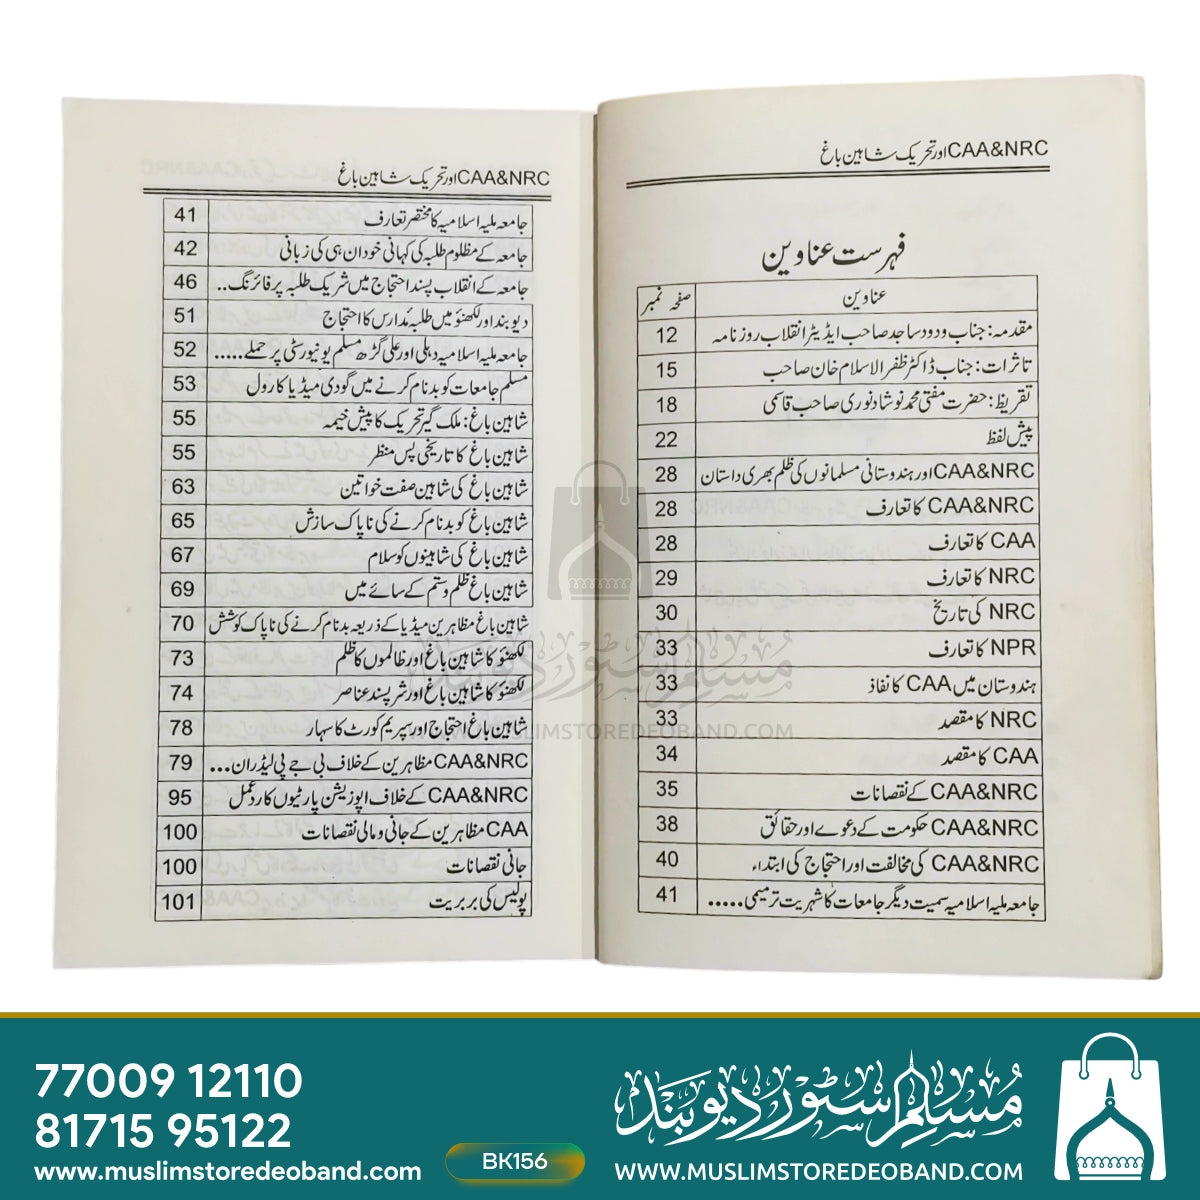 CAA&NRC اور تحریک شاہین باغ
فہرست عناوین
عناوین صفحہ نمبر
مقدمہ: جناب ودود ساجد صاحب ایڈیٹر انقلاب روزنامہ 12
تاثرات: جناب ڈاکٹر ظفر الاسلام خان صاحب 15
تقریظ: حضرت مفتی محمد نوشاد نوری صاحب قاسمی 18
پیش لفظ 22
CAA&NRC اور ہندوستانی مسلمانوں کی ظلم بھری داستان 28
CAA&NRC کا تعارف 28
CAA کا تعارف 28
NRC کا تعارف 29
NRC کی تاریخ 30
NPR کا تعارف 33
ہندوستان میں CAA کا نفاذ 33
NRC کا مقصد 33
CAA کا مقصد 34
CAA&NRC کے نقصانات 35
CAA&NRC حکومت کے دعوے اور حقائق 38
CAA&NRC کی مخالفت اور احتجاج کی ابتداء 40
جامعہ ملیہ اسلامیہ سمیت دیگر جامعات کا شہریت ترمیمی..... 41
CAA&NRC اور تحریک شاہین باغ
جامعہ ملیہ اسلامیہ کا مختصر تعارف 41
جامعہ کے مظلوم طلبہ کی کہانی خود ان ہی کی زبانی 42
جامعہ کے انقلاب پسند احتجاج میں شریک طلبہ پر فائرنگ.. 46
دیوبند اور لکھنؤ میں طلبہ مدارس کا احتجاج 51
جامعہ ملیہ اسلامیہ دہلی اور علی گڑھ مسلم یونیورسٹی پر حملے..... 52
مسلم جامعات کو بدنام کرنے میں گودی میڈیا کا رول 53
شاہین باغ: ملک گیر تحریک کا پیش خیمہ 55
شاہین باغ کا تاریخی پس منظر 55
شاہین باغ کی شاہین صفت خواتین 63
شاہین باغ کو بدنام کرنے کی ناپاک سازش 65
شاہین باغ کی شاہینوں کو سلام 67
شاہین باغ ظلم و ستم کے سائے میں 69
شاہین باغ مظاہرین میڈیا کے ذریعہ بدنام کرنے کی ناپاک کوشش 70
لکھنؤ کا شاہین باغ اور ظالموں کا ظلم 73
لکھنؤ کا شاہین باغ اور شر پسند عناصر 74
شاہین باغ احتجاج اور سپریم کورٹ کا سہارا 78
CAA&NRC مظاہرین کے خلاف بی جے پی لیڈران... 79
CAA&NRC کے خلاف اپوزیشن پارٹیوں کا ردعمل 95
CAA مظاہرین کے جانی و مالی نقصانات 100
جانی نقصانات 100
پولیس کی بربریت 101
مسلم سٹور دیوبند
WWW.MUSLIMSTOREDEOBAND.COM
77009 12110
81715 95122
www.muslimstoredeoband.com
BK156
مسلم سٹور دیوبند
WWW.MUSLIMSTOREDEOBAND.COM